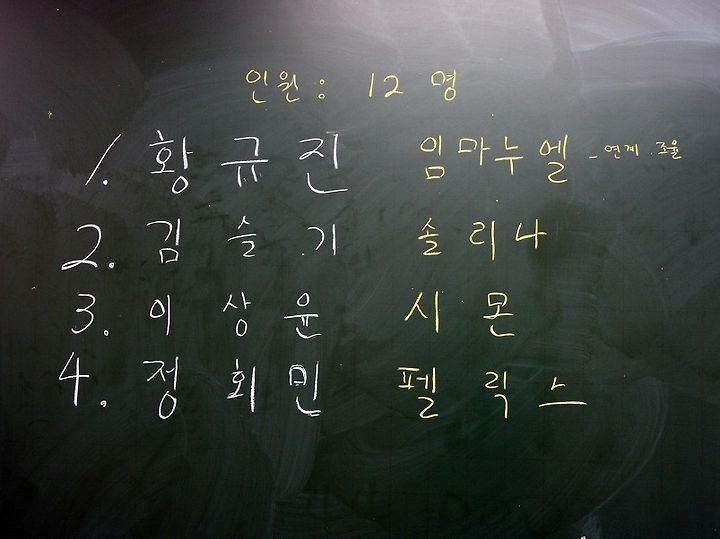 인원 : 12 명
1. 황규진 임마누엘 - 연계.조율
2. 김슬기 솔리나
3. 이상윤 시몬
4. 정회민 펠릭스